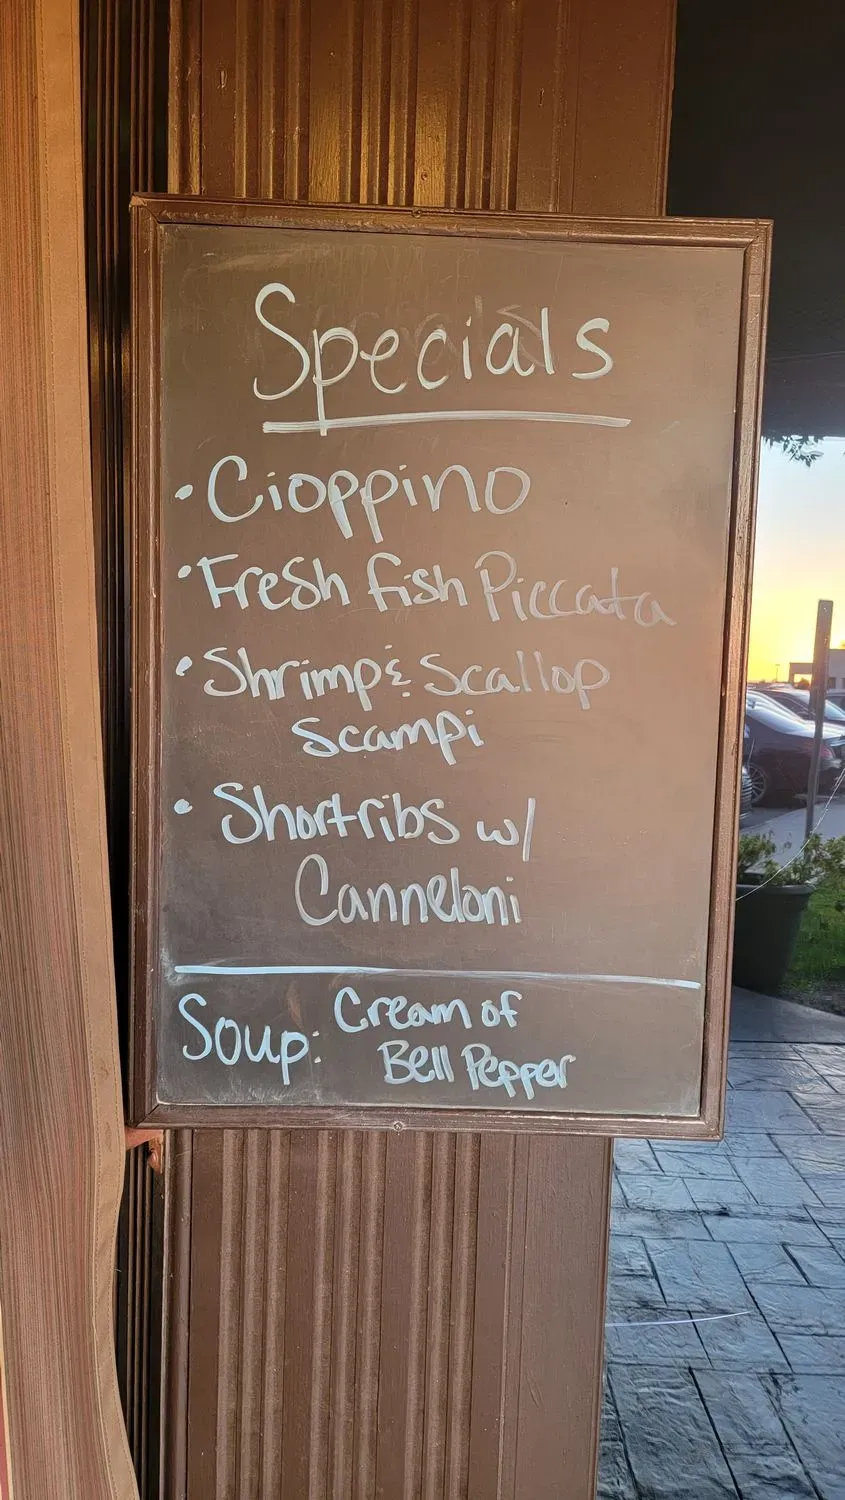 Specials
• Cioppino
• Fresh fish Piccata
• Shrimp & Scallop
Scampi
• Shortribs w/
Canneloni
Soup: Cream of
Bell Pepper